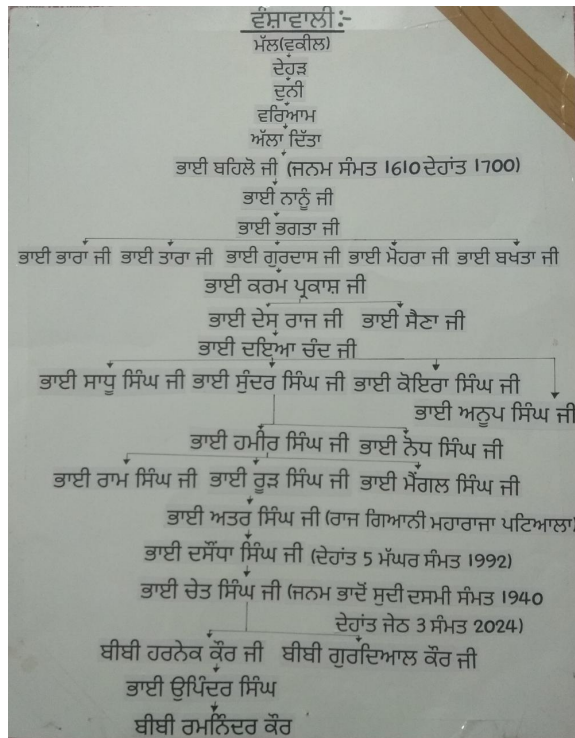 ਵੰਸ਼ਾਵਾਲੀ:-
ਮੱਲ(ਵਕੀਲ)
ਦੇਹੜ
ਦੁਨੀ
ਵਰਿਆਮ
ਅੱਲਾ ਦਿੱਤਾ
ਭਾਈ ਬਹਿਲੋ ਜੀ (ਜਨਮ ਸੰਮਤ 1610 ਦੇਹਾਂਤ 1700)
ਭਾਈ ਨਾਨੂੰ ਜੀ
ਭਾਈ ਭਗਤਾ ਜੀ
ਭਾਈ ਭਾਰਾ ਜੀ ਭਾਈ ਤਾਰਾ ਜੀ ਭਾਈ ਗੁਰਦਾਸ ਜੀ ਭਾਈ ਮੋਹਰਾ ਜੀ ਭਾਈ ਬਖਤਾ ਜੀ
ਭਾਈ ਕਰਮ ਪ੍ਰਕਾਸ਼ ਜੀ
ਭਾਈ ਦੇਸ ਰਾਜ ਜੀ ਭਾਈ ਸੈਣਾ ਜੀ
ਭਾਈ ਦਇਆ ਚੰਦ ਜੀ
ਭਾਈ ਸਾਧੂ ਸਿੰਘ ਜੀ ਭਾਈ ਸੁੰਦਰ ਸਿੰਘ ਜੀ ਭਾਈ ਕੋਇਰਾ ਸਿੰਘ ਜੀ
ਭਾਈ ਅਨੂਪ ਸਿੰਘ ਜੀ
ਭਾਈ ਹਮੀਰ ਸਿੰਘ ਜੀ ਭਾਈ ਨੋਧ ਸਿੰਘ ਜੀ
ਭਾਈ ਰਾਮ ਸਿੰਘ ਜੀ ਭਾਈ ਰੂੜ ਸਿੰਘ ਜੀ ਭਾਈ ਮੈਂਗਲ ਸਿੰਘ ਜੀ
ਭਾਈ ਅਤਰ ਸਿੰਘ ਜੀ (ਰਾਜ ਗਿਆਨੀ ਮਹਾਰਾਜਾ ਪਟਿਆਲਾ)
ਭਾਈ ਦਸੌਂਧਾ ਸਿੰਘ ਜੀ (ਦੇਹਾਂਤ 5 ਮੱਘਰ ਸੰਮਤ 1992)
ਭਾਈ ਚੇਤ ਸਿੰਘ ਜੀ (ਜਨਮ ਭਾਦੋਂ ਸੁਦੀ ਦਸਮੀ ਸੰਮਤ 1940
ਦੇਹਾਂਤ ਜੇਠ 3 ਸੰਮਤ 2024)
ਬੀਬੀ ਹਰਨੇਕ ਕੌਰ ਜੀ ਬੀਬੀ ਗੁਰਦਿਆਲ ਕੌਰ ਜੀ
ਭਾਈ ਉਪਿੰਦਰ ਸਿੰਘ
ਬੀਬੀ ਰਮਨਿੰਦਰ ਕੌਰ